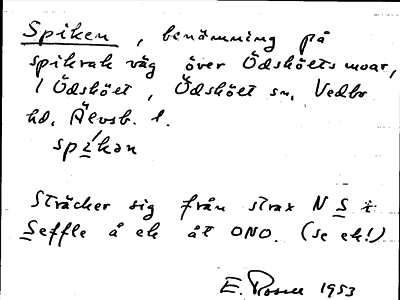 Spiken, benämning på
spikrak väg över Ödskölts moar,
i Ödsköłt, Ödsköłt sn, Vedbo
hd, Älvsb. l.
spíkən
Sträcker sig från strax N S i
Seffle å ek åt ONO. (se ek!)
E. 1953